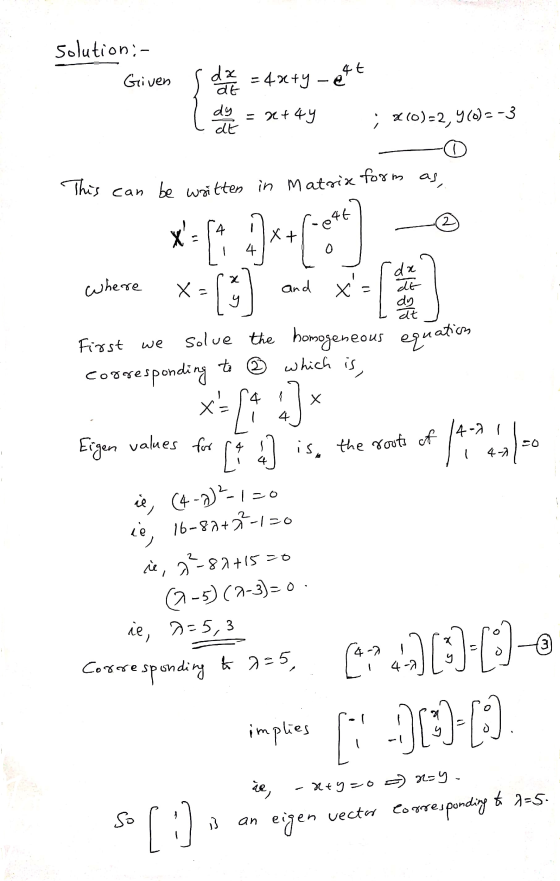 Solution:-
Given { dx/dt = 4x+y - e^4t
dy/dt = x+4y ; x(0)=2, y(0)=-3
—— ①
This can be written in Matrix form as,
X' = [4 1; 1 4] X + [-e^4t; 0] —— ②
where X = [x; y] and X' = [dx/dt; dy/dt]
First we solve the homogeneous equation
corresponding to ② which is,
X' = [4 1; 1 4] X
Eigen values for [4 1; 1 4] is, the roots of |4-λ 1; 1 4-λ| = 0
ie, (4-λ)²-1=0
ie, 16-8λ+λ²-1=0
ie, λ²-8λ+15=0
(λ-5)(λ-3)=0.
ie, λ=5, 3
Corresponding to λ=5, [4-λ 1; 1 4-λ] [x; y] = [0; 0] — ③
implies [-1 1; 1 -1] [x; y] = [0; 0].
ie, -x+y=0 ⇒ x=y.
So [1; 1] is an eigen vector corresponding to λ=5.